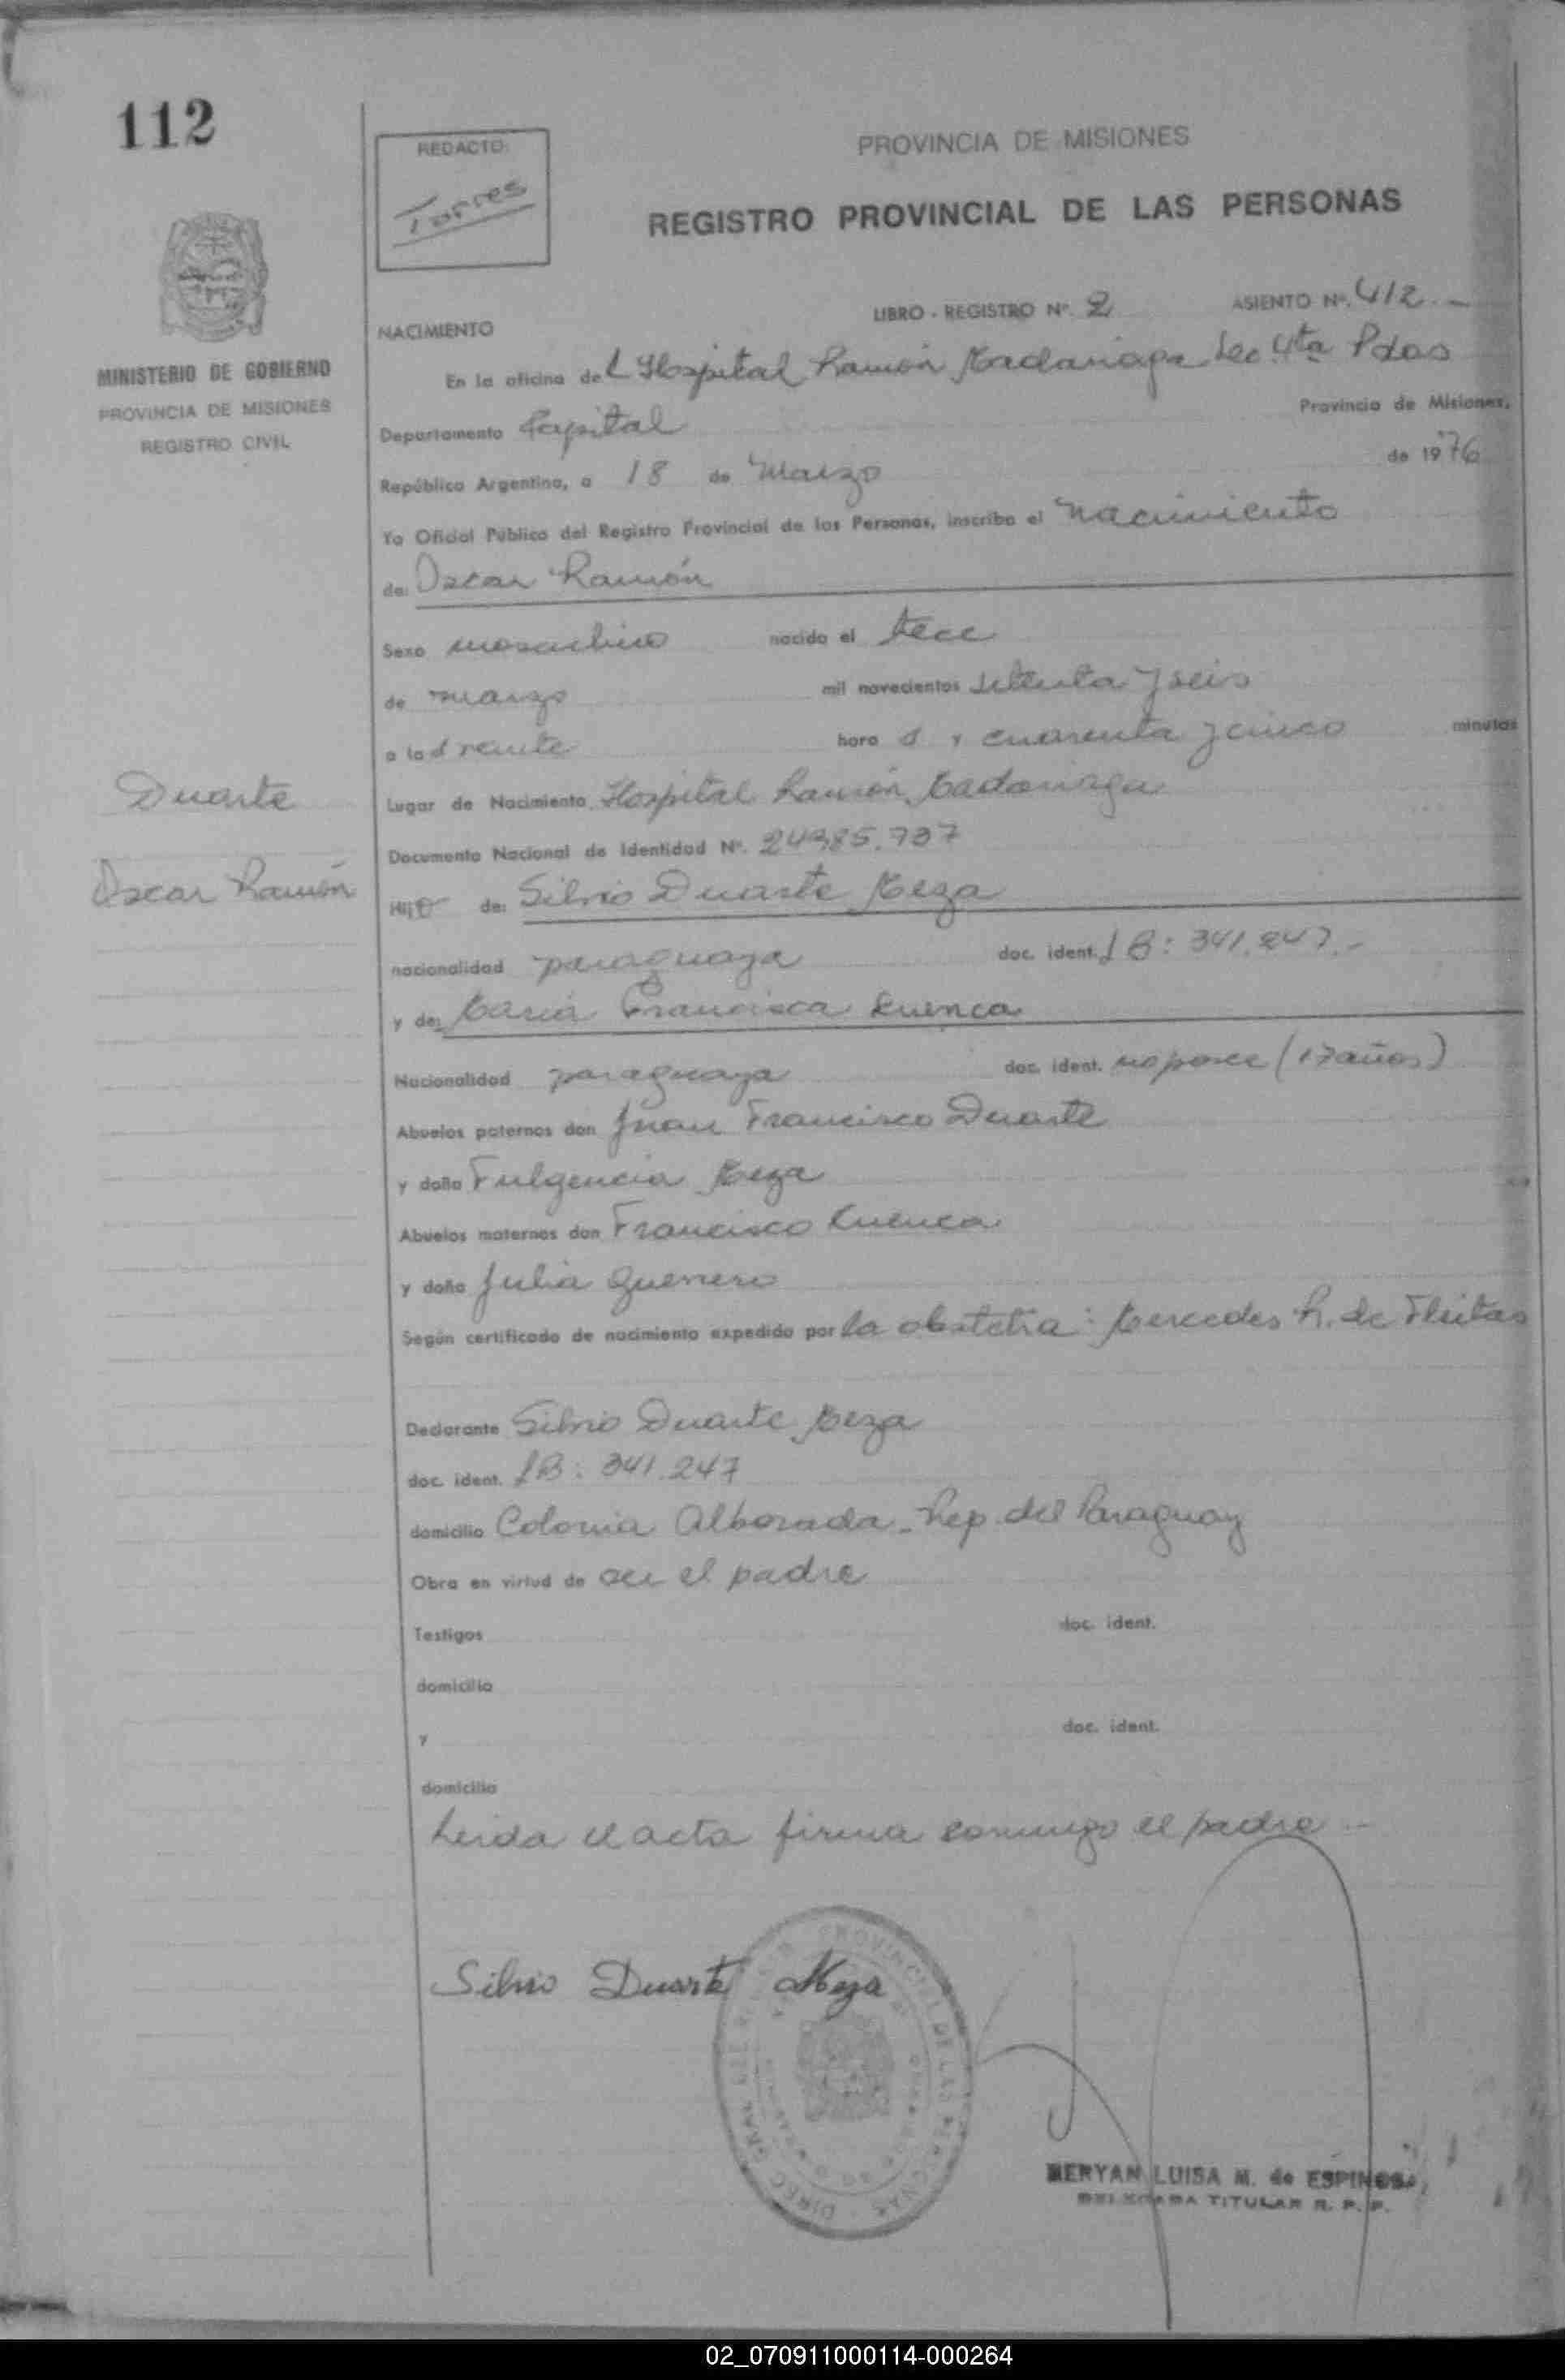 112
REDACTO:
Torres
PROVINCIA DE MISIONES
REGISTRO PROVINCIAL DE LAS PERSONAS
MINISTERIO DE GOBIERNO
PROVINCIA DE MISIONES
REGISTRO CIVIL
LIBRO - REGISTRO Nº. 2 ASIENTO Nº. 412.-
NACIMIENTO
En la oficina del Hospital Ramón Madariaga Sec 4ta Pdas
Departamento Capital Provincia de Misiones,
República Argentina, a 18 de Marzo de 1976
Yo Oficial Público del Registro Provincial de las Personas, inscribo el nacimiento
de: Oscar Ramón
Sexo masculino nacido el trece
de marzo mil novecientos setenta y seis
a las veinte hora s y cuarenta y cinco minutos
Lugar de Nacimiento Hospital Ramón Madariaga
Documento Nacional de Identidad Nº.
Duarte
Oscar Ramón
Hijo de: Silvio Duarte Meza
nacionalidad paraguaya doc. ident. 341.247.-
y de: María Francisca Cuenca
Nacionalidad paraguaya doc. ident. no posee (17 años)
Abuelos paternos don Juan Francisco Duarte
y doña Fulgencia Meza
Abuelos maternos don Francisco Cuenca
y doña Julia Guerrero
Según certificado de nacimiento expedido por la obstetra: Mercedes R. de Fleitas
Declarante Silvio Duarte Meza
doc. ident. 341.247
domicilio Colonia Alborada - Rep. del Paraguay
Obra en virtud de ser el padre
Testigos doc. ident.
domicilio
y doc. ident.
domicilio
Leida el acta firma conmigo el padre.-
Silvio Duarte Meza
MERYAN LUISA M. de ESPINOSA
DELEGADA TITULAR R. P. P.
02_070911000114-000264